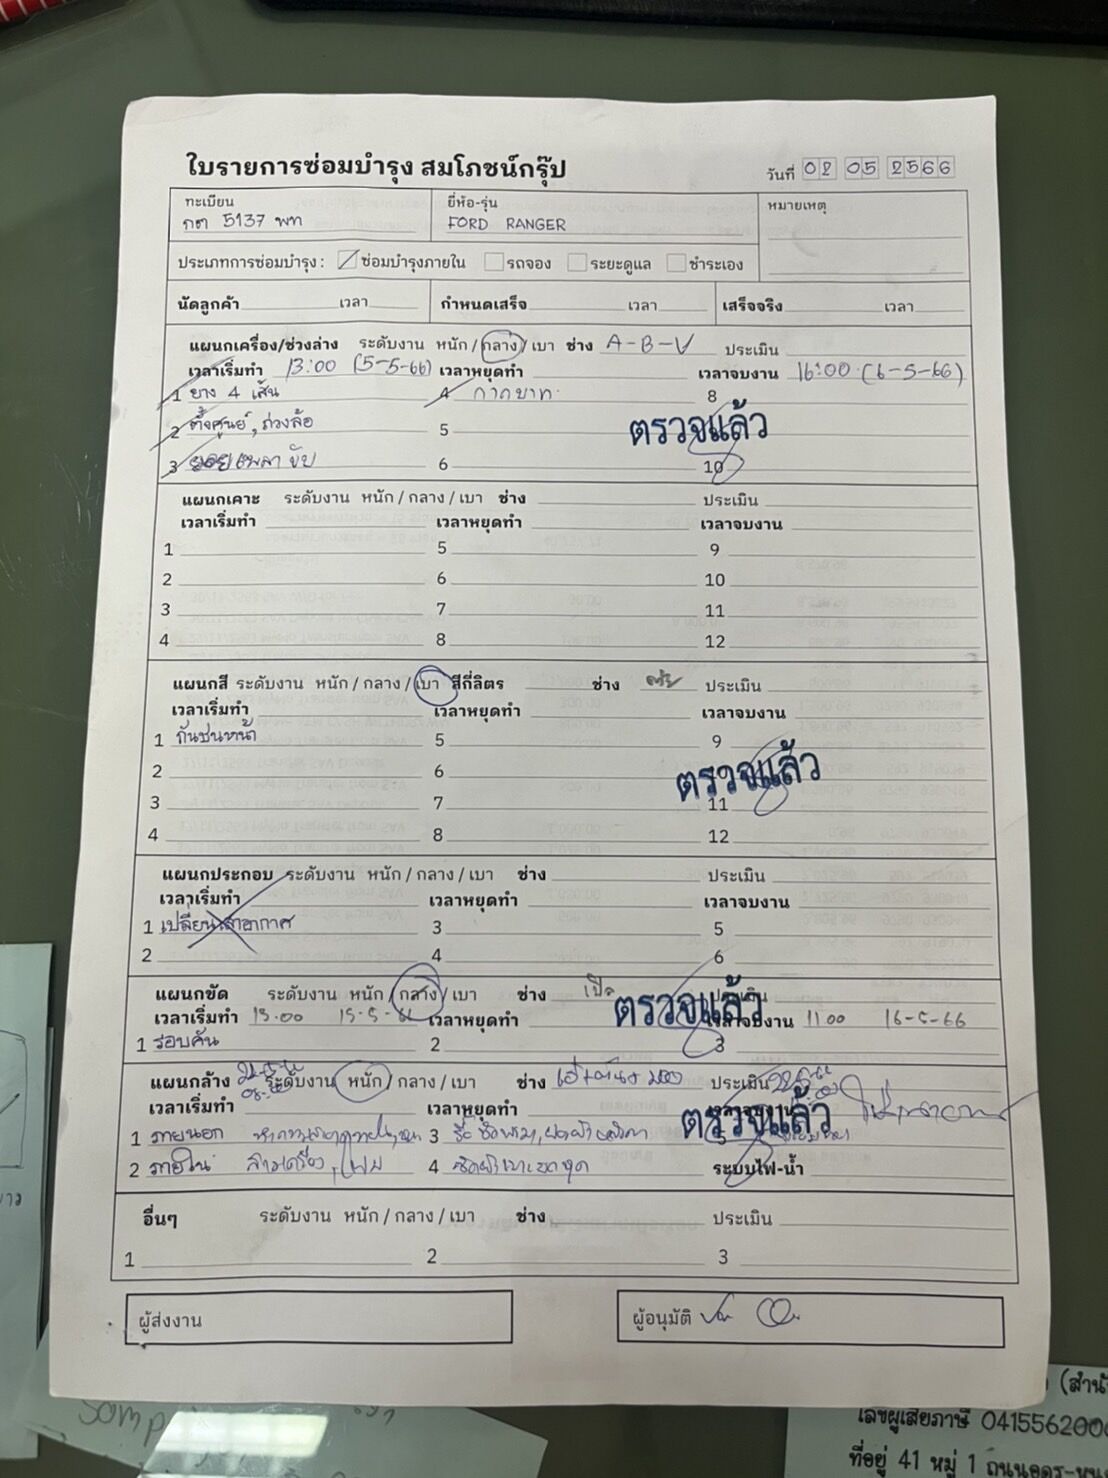 ใบรายการซ่อมบำรุง สมโภชน์กรุ๊ป
วันที่ 02 05 2566
ทะเบียน ยี่ห้อ-รุ่น หมายเหตุ
กต 5137 พท FORD RANGER
ประเภทการซ่อมบำรุง : ซ่อมบำรุงภายใน รถจอง ระยะดูแล ชำระเอง
นัดลูกค้า เวลา กำหนดเสร็จ เวลา เสร็จจริง เวลา
แผนกเครื่อง/ช่วงล่าง ระดับงาน หนัก / กลาง / เบา ช่าง A-B-V ประเมิน
เวลาเริ่มทำ 13:00 (5-5-66) เวลาหยุดทำ เวลาจบงาน 16:00 (6-5-66)
1 ยาง 4 เส้น 4 กาคบาท 8
2 ตั้งศูนย์, ถ่วงล้อ 5 ตรวจแล้ว
3 เพลา ขับ 6 10
แผนกเคาะ ระดับงาน หนัก / กลาง / เบา ช่าง ประเมิน
เวลาเริ่มทำ เวลาหยุดทำ เวลาจบงาน
1 5 9
2 6 10
3 7 11
4 8 12
แผนกสี ระดับงาน หนัก / กลาง / เบา สีกี่ลิตร ช่าง ประเมิน
เวลาเริ่มทำ เวลาหยุดทำ เวลาจบงาน
1 กันชนหน้า 5 9
2 6 ตรวจแล้ว
3 7 11
4 8 12
แผนกประกอบ ระดับงาน หนัก / กลาง / เบา ช่าง ประเมิน
เวลาเริ่มทำ เวลาหยุดทำ เวลาจบงาน
1 เปลี่ยนเสาอากาศ 3 5
2 4 6
แผนกขัด ระดับงาน หนัก / กลาง / เบา ช่าง เปิ้ล ตรวจแล้ว ประเมิน
เวลาเริ่มทำ 13.00 15-5-66 เวลาหยุดทำ เวลาจบงาน 11 00 16-5-66
1 รอบคัน 2 3
แผนกล้าง ระดับงาน หนัก / กลาง / เบา ช่าง ประเมิน
เวลาเริ่มทำ เวลาหยุดทำ ตรวจแล้ว เวลาจบงาน
1 ภายนอก 3 5
2 ภายใน 4 ระบบไฟ-น้ำ
อื่นๆ ระดับงาน หนัก / กลาง / เบา ช่าง ประเมิน
1 2 3
ผู้ส่งงาน ผู้อนุมัติ
(สำนั
เลขผู้เสียภาษี 0415562000
ที่อยู่ 41 หมู่ 1 ถนนอุดร-